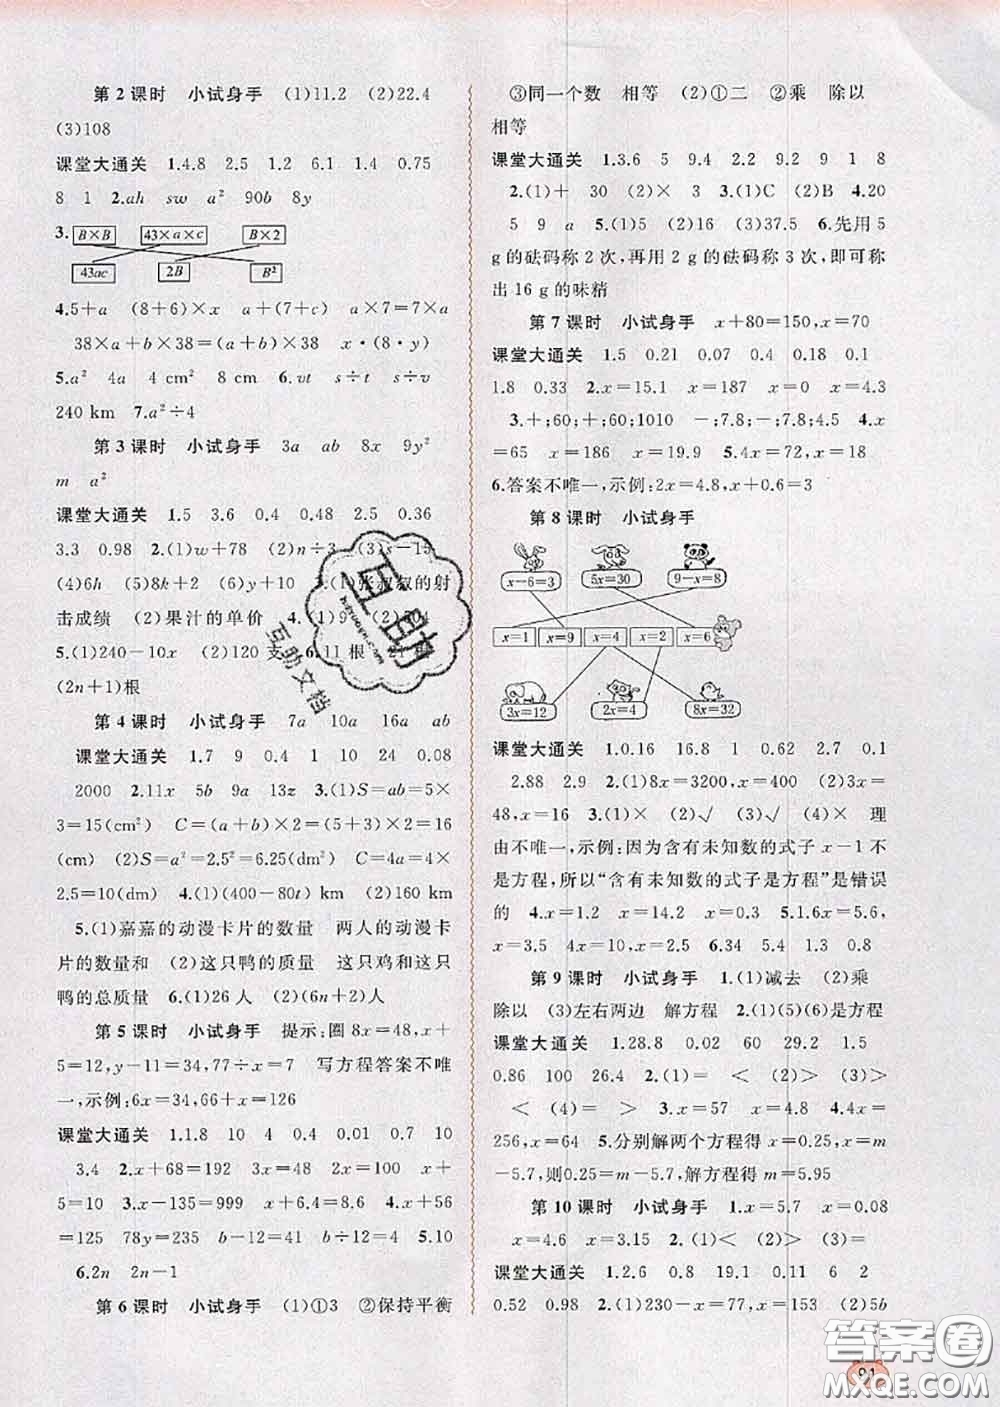 第2课时 小试身手 (1)11.2 (2)22.4
(3)108
课堂大通关 1.4.8 2.5 1.2 6.1 1.4 0.75
8 1 2.ah sw a² 90b 8y
3. B×B 43×a×c B×2
43ac 2B B²
4.5+a (8+6)×x a+(b+c) a×7=7×a
38×a+b×38=(a+b)×38 x·(8·y)
5.a² 4a 4 cm² 8 cm 6.vt s÷t s÷v
240 km 7.a²÷4
第3课时 小试身手 3a ab 8x 9y²
m a²
课堂大通关 1.5 3.6 0.4 0.48 2.5 0.36
3.3 0.98 2.(1)w+78 (2)n÷3 (3)s-15
(4)6h (5)8k+2 (6)y+10 3.(1)张叔叔的射
击成绩 (2)果汁的单价 4.(1)9
5.(1)240-10x (2)120支 6.11根 21根
(2n+1)根
第4课时 小试身手 7a 10a 16a ab
课堂大通关 1.7 9 0.4 1 10 24 0.08
2000 2.11x 5b 9a 13z 3.(1)S=ab=5×
3=15(cm²) C=(a+b)×2=(5+3)×2=16
(cm) (2)S=a²=2.5²=6.25(dm²) C=4a=4×
2.5=10(dm) 4.(1)(400-80t) km (2)160 km
5.(1)嘉嘉的动漫卡片的数量 两人的动漫卡
片的数量和 (2)这只鸭的质量 这只鸡和这只
鸭的总质量 6.(1)26人 (2)(6n+2)人
第5课时 小试身手 提示:圈8x=48,x+
5=12,y-11=34,77÷x=7 写方程答案不唯
一,示例:6x=34,66+x=126
课堂大通关 1.1.8 10 4 0.4 0.01 0.7 10
3.4 2.x+68=192 3x=36 2x=100 x+
5=10 3.x-135=999 x+6.4=8.6 4.x+56
=125 78y=235 b-12=45 b÷12=45 5.10
6.2n 2n-1
第6课时 小试身手 (1)①3 ②保持平衡
③同一个数 相等 (2)①二 ②乘 除以
相等
课堂大通关 1.3.6 5 9.4 2.2 9.2 9 1 8
2.(1)+ 30 (2)× 3 3.(1)C (2)B 4.20
5 9 a 5.(1)5 (2)16 (3)37.5 6.先用5
g的砝码称2次,再用2 g的砝码称3次,即可称
出16 g的味精
第7课时 小试身手 x+80=150,x=70
课堂大通关 1.5 0.21 0.07 0.4 0.18 0.1
1.8 0.33 2.x=15.1 x=187 x=0 x=4.3
3.+;60;+;60;1010 -;7.8;-;7.8;4.5 4.x
=65 x=166 x=19.9 5.4x=72,x=18
6.答案不唯一,示例:2x=4.8,x+0.6=3
第8课时 小试身手
x-6=3 5x=30 9-x=8
x=1 x=9 x=4 x=2 x=6
3x=12 2x=4 8x=32
课堂大通关 1.0.16 16.8 1 0.62 2.7 0.1
2.88 2.9 2.(1)8x=3200,x=400 (2)3x=
48,x=16 3.(1)× (2)√ (3)√ (4)× 理
由不唯一,示例:因为含有未知数的式子x-1不
是方程,所以“含有未知数的式子是方程”是错误
的 4.x=1.2 x=14.2 x=0.3 5.1.6x=5.6,
x=3.5 4x=10,x=2.5 6.34 5.4 1.5
第9课时 小试身手 1.(1)减去 (2)乘
除以 (3)左右两边 解方程 2.(1)(5)(6)是方程
课堂大通关 1.28.8 0.02 60 29.2 1.5
0.86 100 26.4 2.(1)= < (2)> (3)>
< (4)= > 3.x=57 x=4.8 4.4x=
256,x=64 5.分别解两个方程得x=0.25,x=m
-5.7,则0.25=m-5.7,解方程得m=5.95
第10课时 小试身手 1.x=5.7 x=0.08
x=4.6 x=100 2.(1)< (2)> (3)=
课堂大通关 1.2.6 0.8 19.1 0.11 6 2
0.52 0.98 2.(1)230-x=77,x=153 (2)5b
91
互助
互助文档
答案圈
MXQE.COM